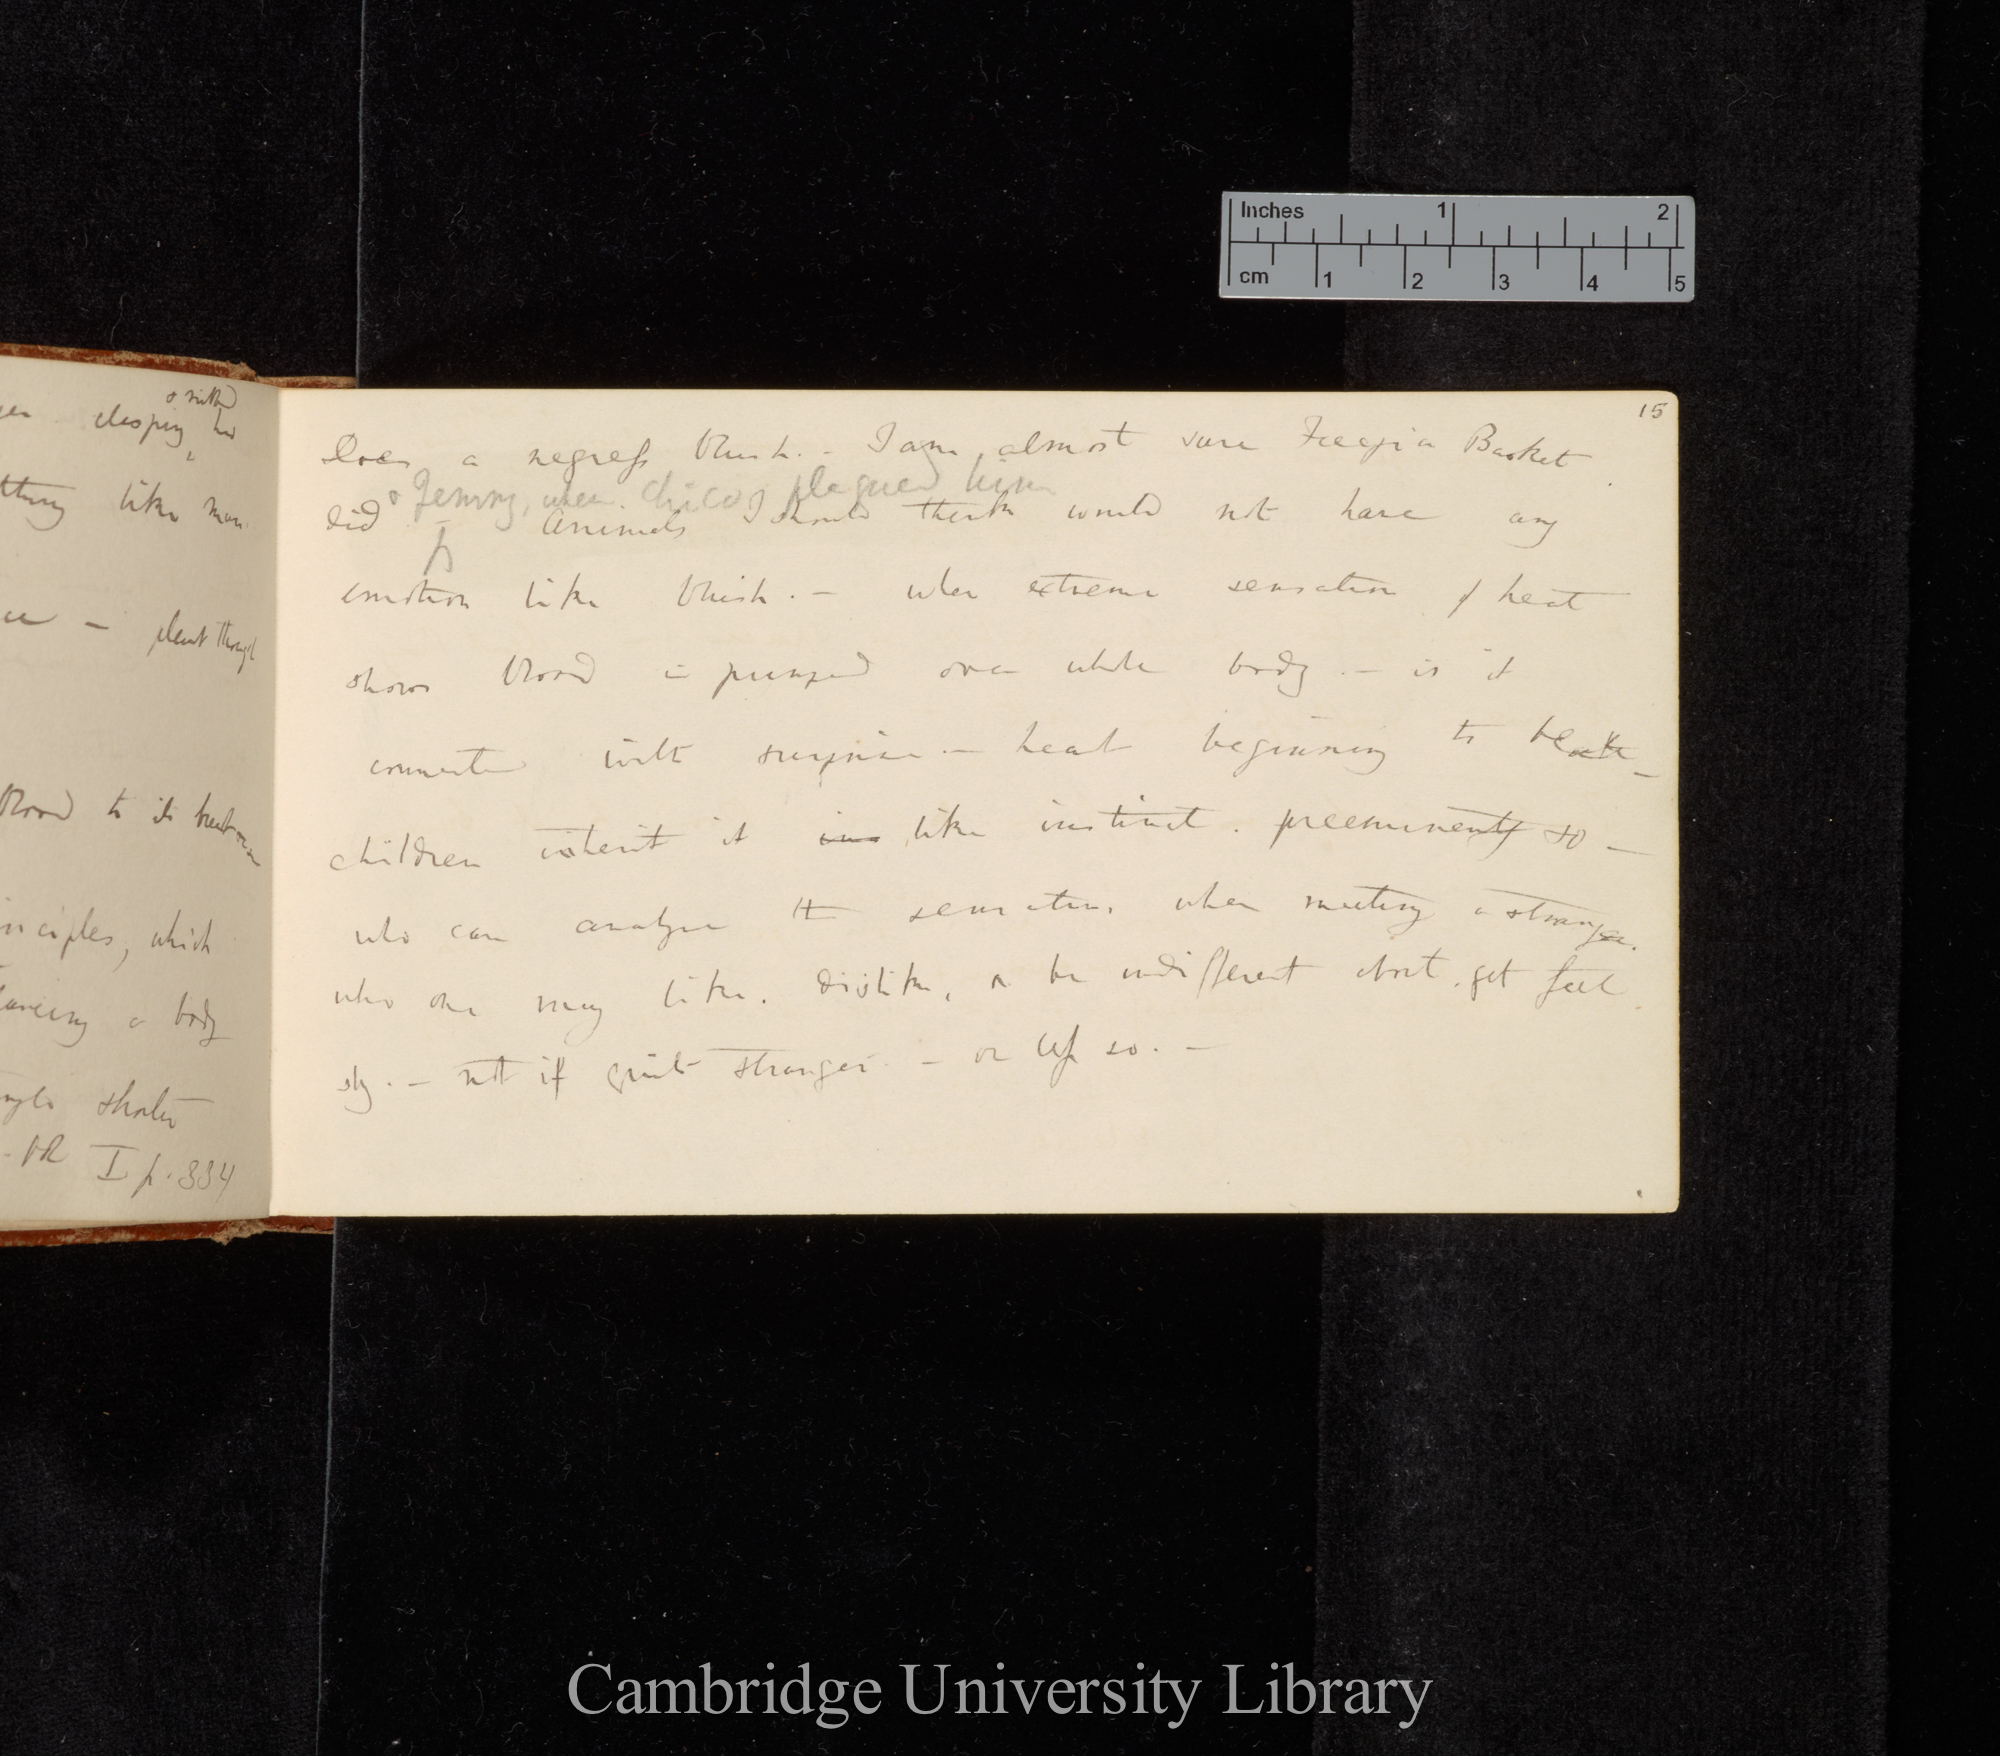 & with
clasping, her
thing like man.
— plant though
blood to its
principles, which
a body
shorter
I p. 334
15
Does a negress blush. — I am almost sure Fuegia Basket
& Jemmy, when Chico plagued him
did — Animals I should think would not have any
emotion like blush. — when extreme sensation of heat
shows blood is pumped over whole body. — is it
connected with surprise. — heart beginning to beat —
children inherit it like instinct. preeminently so —
who can analyse the sensation, when meeting a stranger.
who one may like, dislike, or be indifferent about, yet feel
shy. — not if quite stranger. — or less so. —
Inches 1 2
cm 1 2 3 4 5
Cambridge University Library